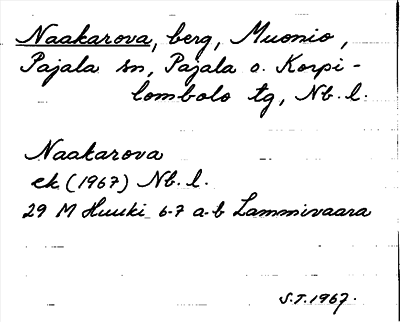 Naakarova, berg, Muonio,
Pajala sn, Pajala o. Korpi-
lombolo tg, Nb. l.
Naakarova
ek (1967) Nb. l.
29 M Huuki 6-7 a-b Lammivaara
S.T. 1967.